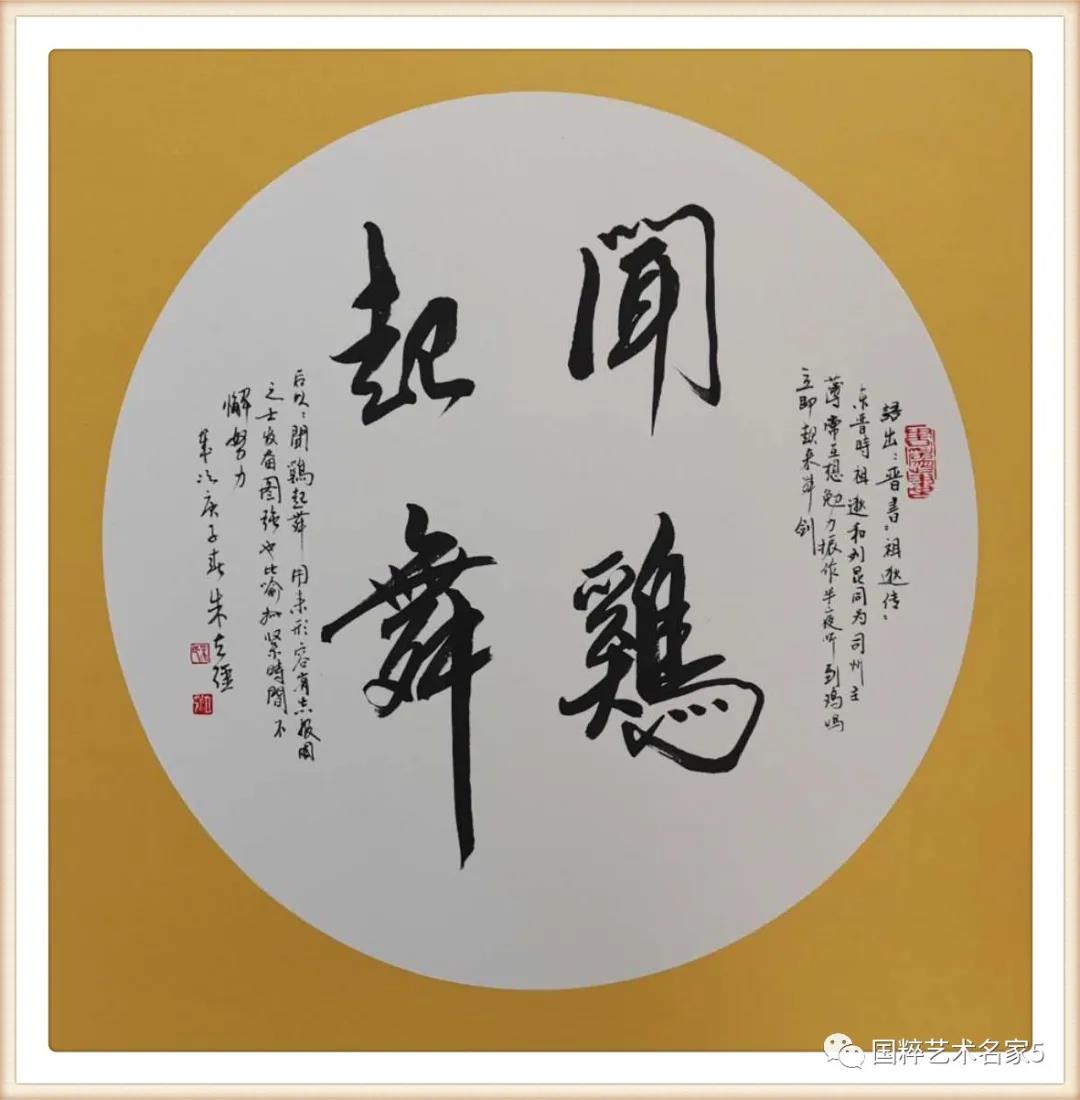 聞鷄
起舞
語出:晋書:祖逖传:
东晋時祖逖和刘昆同为司州主
薄常互想勉力振作半夜听到鸡鸣
立即起来舞剑
后以:聞鷄起舞 用来形容有志报国
之士发奋图强也比喻抓紧時間不
懈努力
歲次庚子春朱
国粹艺术名家5